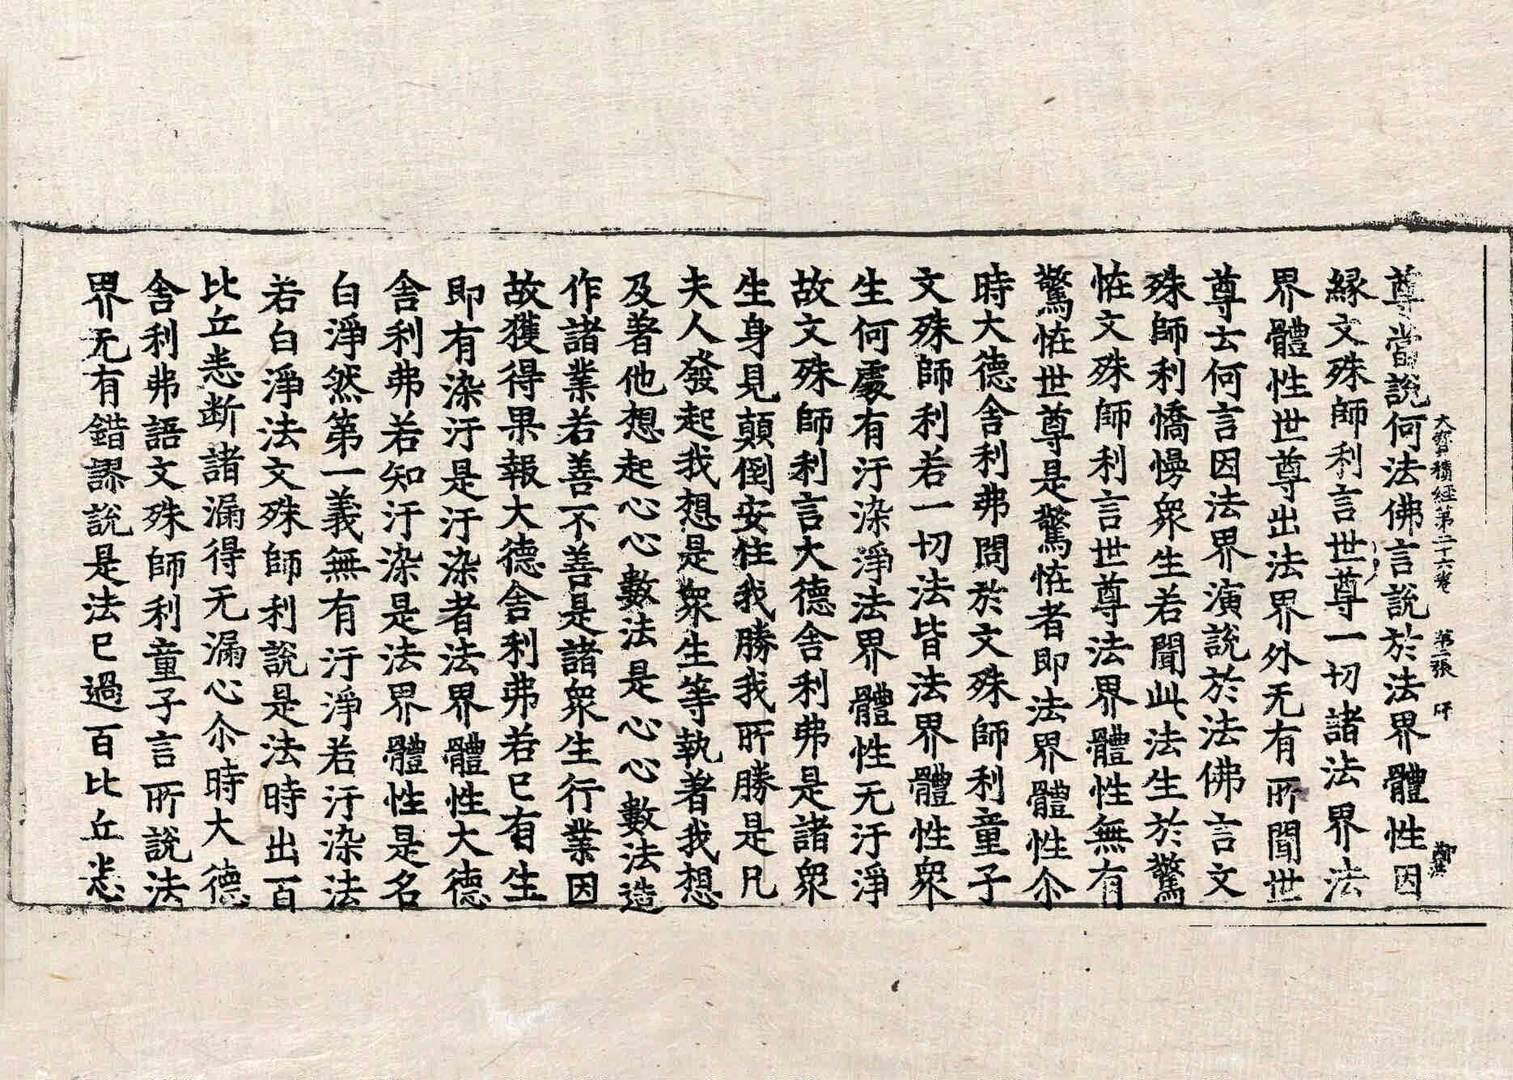 大寶積經第二十六卷 第二張
尊當說何法佛言說於法界體性因
縁文殊師利言世尊一切諸法界法
界體性世尊出法界外无有所聞世
尊云何言因法界演說於法佛言文
殊師利憍慢衆生若聞此法生於驚
恠文殊師利言世尊法界體性無有
驚恠世尊是驚恠者即法界體性尒
時大德舍利弗問於文殊師利童子
文殊師利若一切法皆法界體性衆
生何處有汙染淨法界體性无汙淨
故文殊師利言大德舍利弗是諸衆
生身見顛倒安住我勝我所勝是凡
夫人發起我想是衆生等執著我想
及著他想起心心數法是心心數法造
作諸業若善不善是諸衆生行業因
故獲得果報大德舍利弗若已有生
即有染汙是汙染者法界體性大德
舍利弗若知汙染是法界體性是名
白淨然第一義無有汙淨若汙染法
若白淨法文殊師利說是法時出一百
比丘悉断諸漏得无漏心尒時大德
舍利弗語文殊師利童子言所說法
界无有錯謬說是法已過百比丘悉